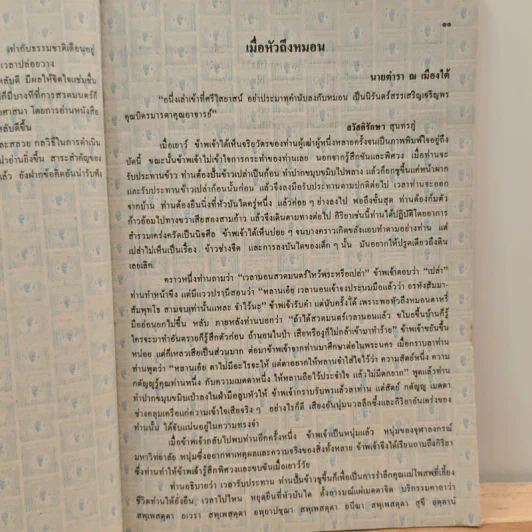 เท่ากับธรรมชาติเดือนอยู่
เวลาปล่อยวาง
หลับดี มีผลให้จิตใจแช่มชื่น
ก็มีบางทีที่การสวดมนตร์ก็
ศาสนา โดยการอ่านหนังสือ
หลับดีขึ้น
ละสลวย กลวิธีในการดำเนิน
น่าอ่านยิ่งขึ้น สาระสำคัญของ
แล้ว ยังฝากข้อคิดอันน่ารับฟัง
๑๑
เมื่อหัวถึงหมอน
นายตำรา ณ เมืองใต้
“อนึ่งเล่าเข้าที่ศรีไสยาสน์ อย่าประมาทคำนับลงกับหมอน เป็นนิรันดร์สรรเสริญเจริญพร
คุณบิดรมารดาคุณอาจารย์”
สวัสดิรักษา สุนทรภู่
เมื่อเยาว์ ข้าพเจ้าได้เห็นจริยวัตรของท่านผู้เฒ่าผู้หนึ่งหลายครั้งจนเป็นภาพพิมพ์ใจอยู่ถึง
บัดนี้ ขณะนั้นข้าพเจ้าไม่เข้าใจการกระทำของท่านเลย นอกจากรู้สึกขันและพิศวง เมื่อท่านจะ
รับประทานข้าว ท่านต้องปั้นข้าวเปล่าเป็นก้อน ทำปากขมุบขมิบไปพลาง แล้วก็ยกชูขึ้นแค่หน้าผาก
และรับประทานข้าวเปล่าก้อนนั้นก่อน แล้วจึงลงมือรับประทานตามปกติต่อไป เวลาท่านจะออก
จากบ้าน ท่านต้องยืนนิ่งที่หัวบันไดครู่หนึ่ง แล้วค่อย ๆ ย่างลงไป พอถึงขั้นสุด ท่านต้องก้มตัว
ก้าวอ้อมไปทางขวาเสียสองสามก้าว แล้วจึงเดินตามทางต่อไป กิริยาเช่นนี้ท่านได้ปฏิบัติโดยอาการ
สำรวมเคร่งครัดเป็นนิจศีล ข้าพเจ้าได้เห็นบ่อย ๆ จนบางคราวเกิดขลังแอบทำตามอย่างท่าน แต่
เปล่าไม่เห็นเป็นเรื่อง ข้าวช่างจืด และการลงบันไดของเด็ก ๆ นั้น มันอยากให้ปรูดเดียวถึงดิน
เลยเลิก
คราวหนึ่งท่านถามว่า “เวลานอนสวดมนตร์ไหว้พระหรือเปล่า” ข้าพเจ้าตอบว่า “เปล่า”
ท่านทำหน้าขึง แต่มีแววปรานีสอนว่า “หลานเอ๋ย เวลานอนเจ้าจงประนมมือแล้วว่า อรหังสัมมา-
สัมพุทโธ สามจบเท่านั้นแหละ จำไว้นะ” ข้าพเจ้ารับคำ แต่นับครั้งได้ เพราะพอหัวถึงหมอนตาหรี่
มืออ่อนยกไม่ขึ้น หลับ ภายหลังท่านบอกว่า “ถ้าได้สวดมนตร์เวลานอนแล้ว ขโมยขึ้นบ้านก็รู้
ใครจะมาทำอันตรายก็รู้สึกตัวก่อน ถ้านอนในป่า เสือหรืองูก็ไม่กล้าเข้ามาทำร้าย” ข้าพเจ้าขยันขึ้น
หน่อย แต่ก็เหลวเสียเป็นส่วนมาก ต่อมาข้าพเจ้าจากท่านมาศึกษาต่อในพระนคร เมื่อกราบลาท่าน
ท่านพูดว่า “หลานเอ๋ย ตาไม่มีอะไรจะให้ แต่ตาอยากให้หลานจำใส่ใจไว้ว่า ความสัตย์หนึ่ง ความ
กตัญญูรู้คุณท่านหนึ่ง กับความเมตตาหนึ่ง ให้หลานถือไว้ประจำใจ แล้วไม่มีตกยาก” พูดแล้วท่าน
ทำปากขมุบขมิบเป่าลงในฝ่ามือลูบหัวให้ ข้าพเจ้ากราบรับพรแล้วลาท่าน แต่สัตย์ กตัญญู เมตตา
ช่างคลุมเครือแก่ความเข้าใจเสียจริง ๆ อย่างไรก็ดี เสียงอันนุ่มนวลลึกซึ้งและกิริยาอันเคร่งของ
ท่านนั้น ได้จับแน่นอยู่ในความทรงจำ
เมื่อข้าพเจ้ากลับไปพบท่านอีกครั้งหนึ่ง ข้าพเจ้าเป็นหนุ่มแล้ว หนุ่มของจุฬาลงกรณ์
มหาวิทยาลัย หนุ่มซึ่งอยากหาเหตุผลและความจริงของสิ่งทั้งหลาย ข้าพเจ้าจึงได้เรียนถามถึงกิริยา
ซึ่งท่านทำให้ข้าพเจ้ารู้สึกพิศวงและขบขันเมื่อเยาว์วัย
ท่านอธิบายว่า เวลารับประทาน ท่านปั้นข้าวชูขึ้นก็เพื่อเป็นการรำลึกคุณแม่โพสพที่เลี้ยง
ชีวิตท่านให้ยั่งยืน เวลาไปไหน หยุดยืนที่หัวบันได ตั้งอารมณ์แผ่เมตตาจิต บริกรรมคาถาว่า
สพฺเพสตฺตา อเวรา สพฺเพสตฺตา อพฺยาปชฺฌา สพฺเพสตฺตา อนีฆา สพฺเพสตฺตา สุขี อตฺตานํ